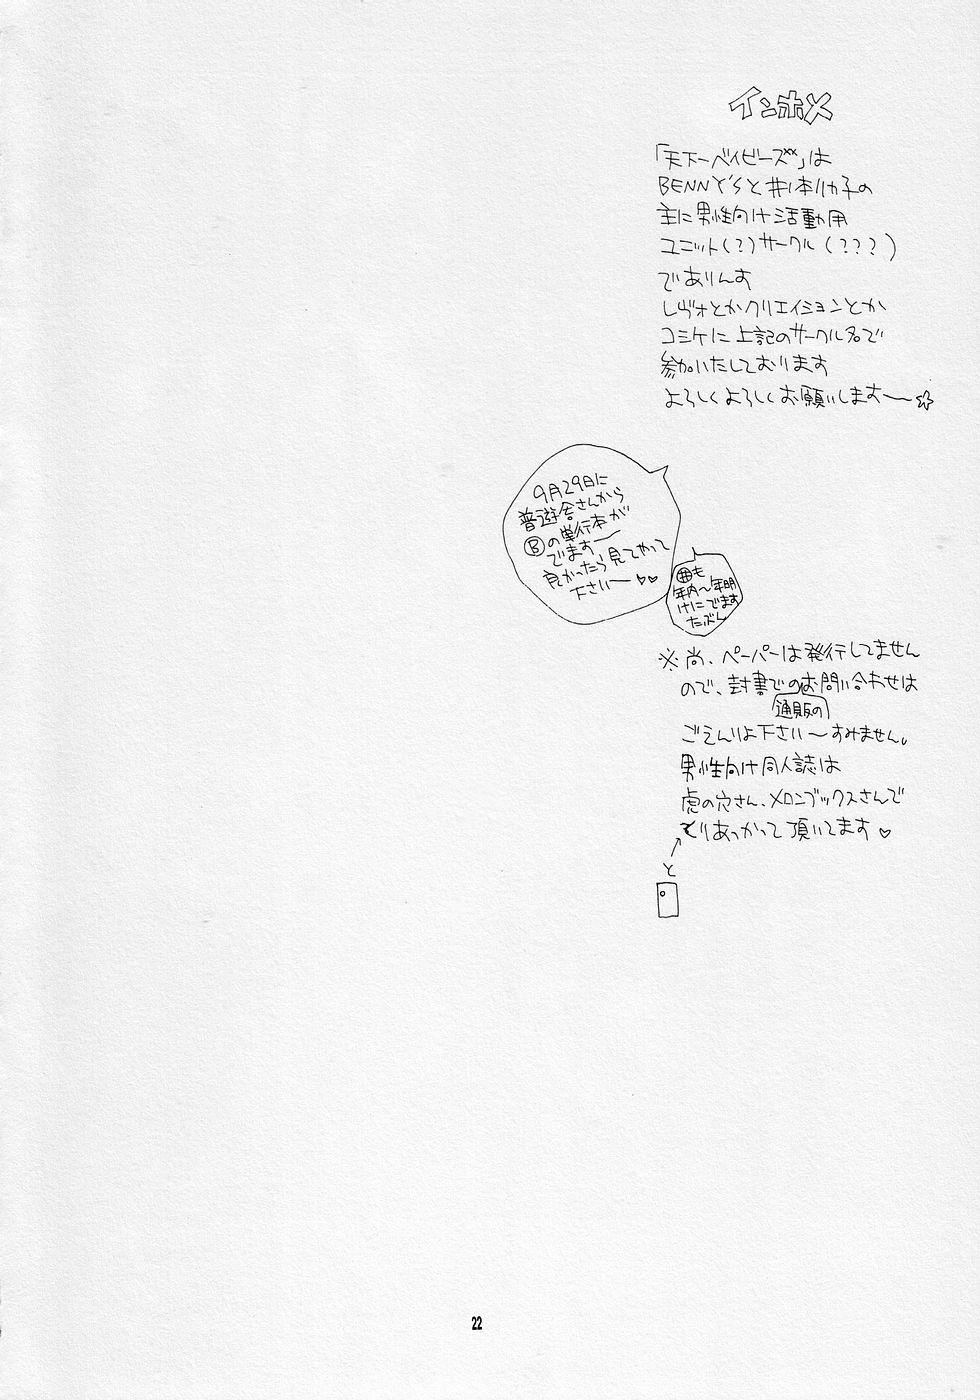 インホメ
「天下一ベイビーズ××」は
BENNY'Sと井本リカ子の
主に男性向け活動用
ユニット(?)サークル(???)
でありんす
レヴォとかクリエイションとか
コミケに上記のサークル名で
参加いたしております
よろしくよろしくお願いします〜☆
9月29日に
普遊舎さんから
Ⓑの単行本が
でます〜
良かったら見てやって
下さい〜♡♡
㊓も
年内〜年明
けにでます
たぶん
※尚、ペーパーは発行してません
ので、封書でのお問い合わせは
通販の
ごえんりょ下さい〜すみません。
男性向け同人誌は
虎の穴さん、メロンブックスさんで
とりあつかって頂いてます♡
と
22